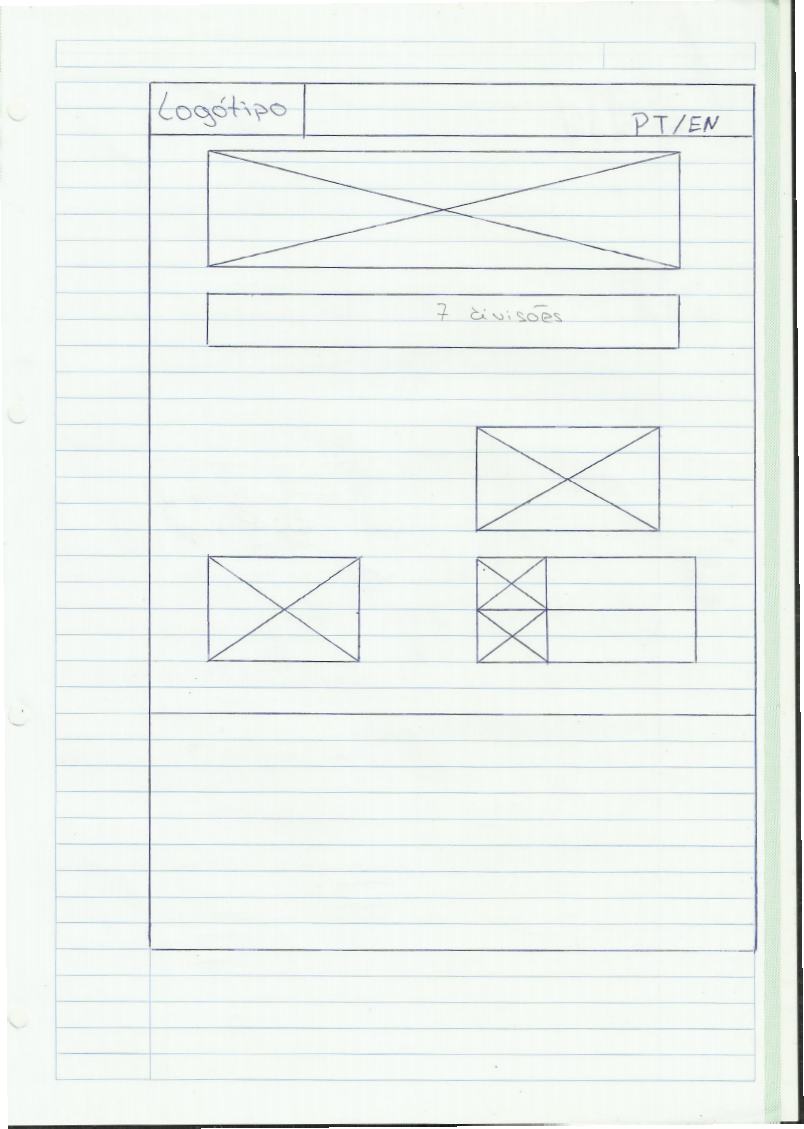 Logótipo
PT/EN
7 divisões